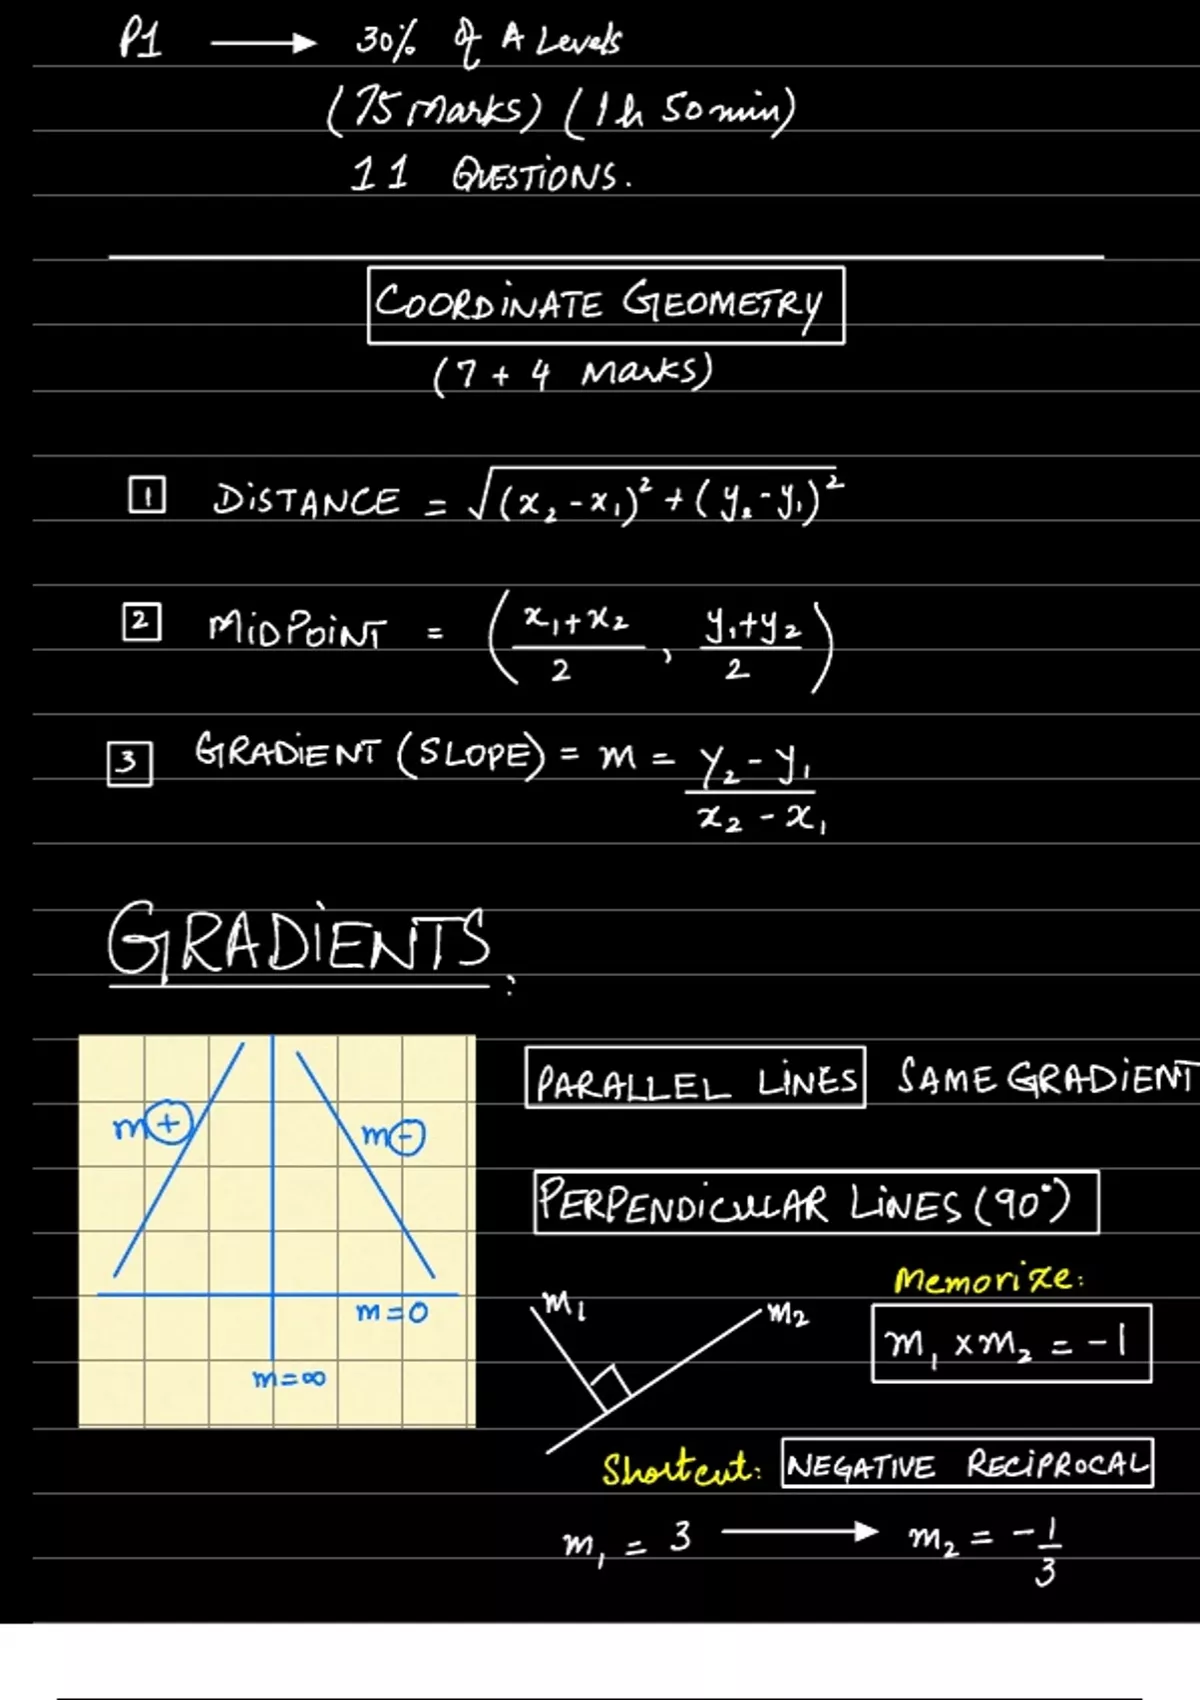 P1 ⟶ 30% of A Levels
(75 Marks) (1h 50min)
11 QUESTIONS.
COORDINATE GEOMETRY
(7 + 4 Marks)
1 DISTANCE = √(x₂-x₁)² + (y₂-y₁)²
2 MIDPOINT = (x₁+x₂/2, y₁+y₂/2)
3 GRADIENT (SLOPE) = m = y₂-y₁/x₂-x₁
GRADIENTS:
m+
m-
m=0
m=∞
PARALLEL LINES SAME GRADIENT
PERPENDICULAR LINES (90°)
Memorize:
m₁
m₂
m₁ × m₂ = -1
Shortcut: NEGATIVE RECIPROCAL
m₁ = 3 ⟶ m₂ = -1/3